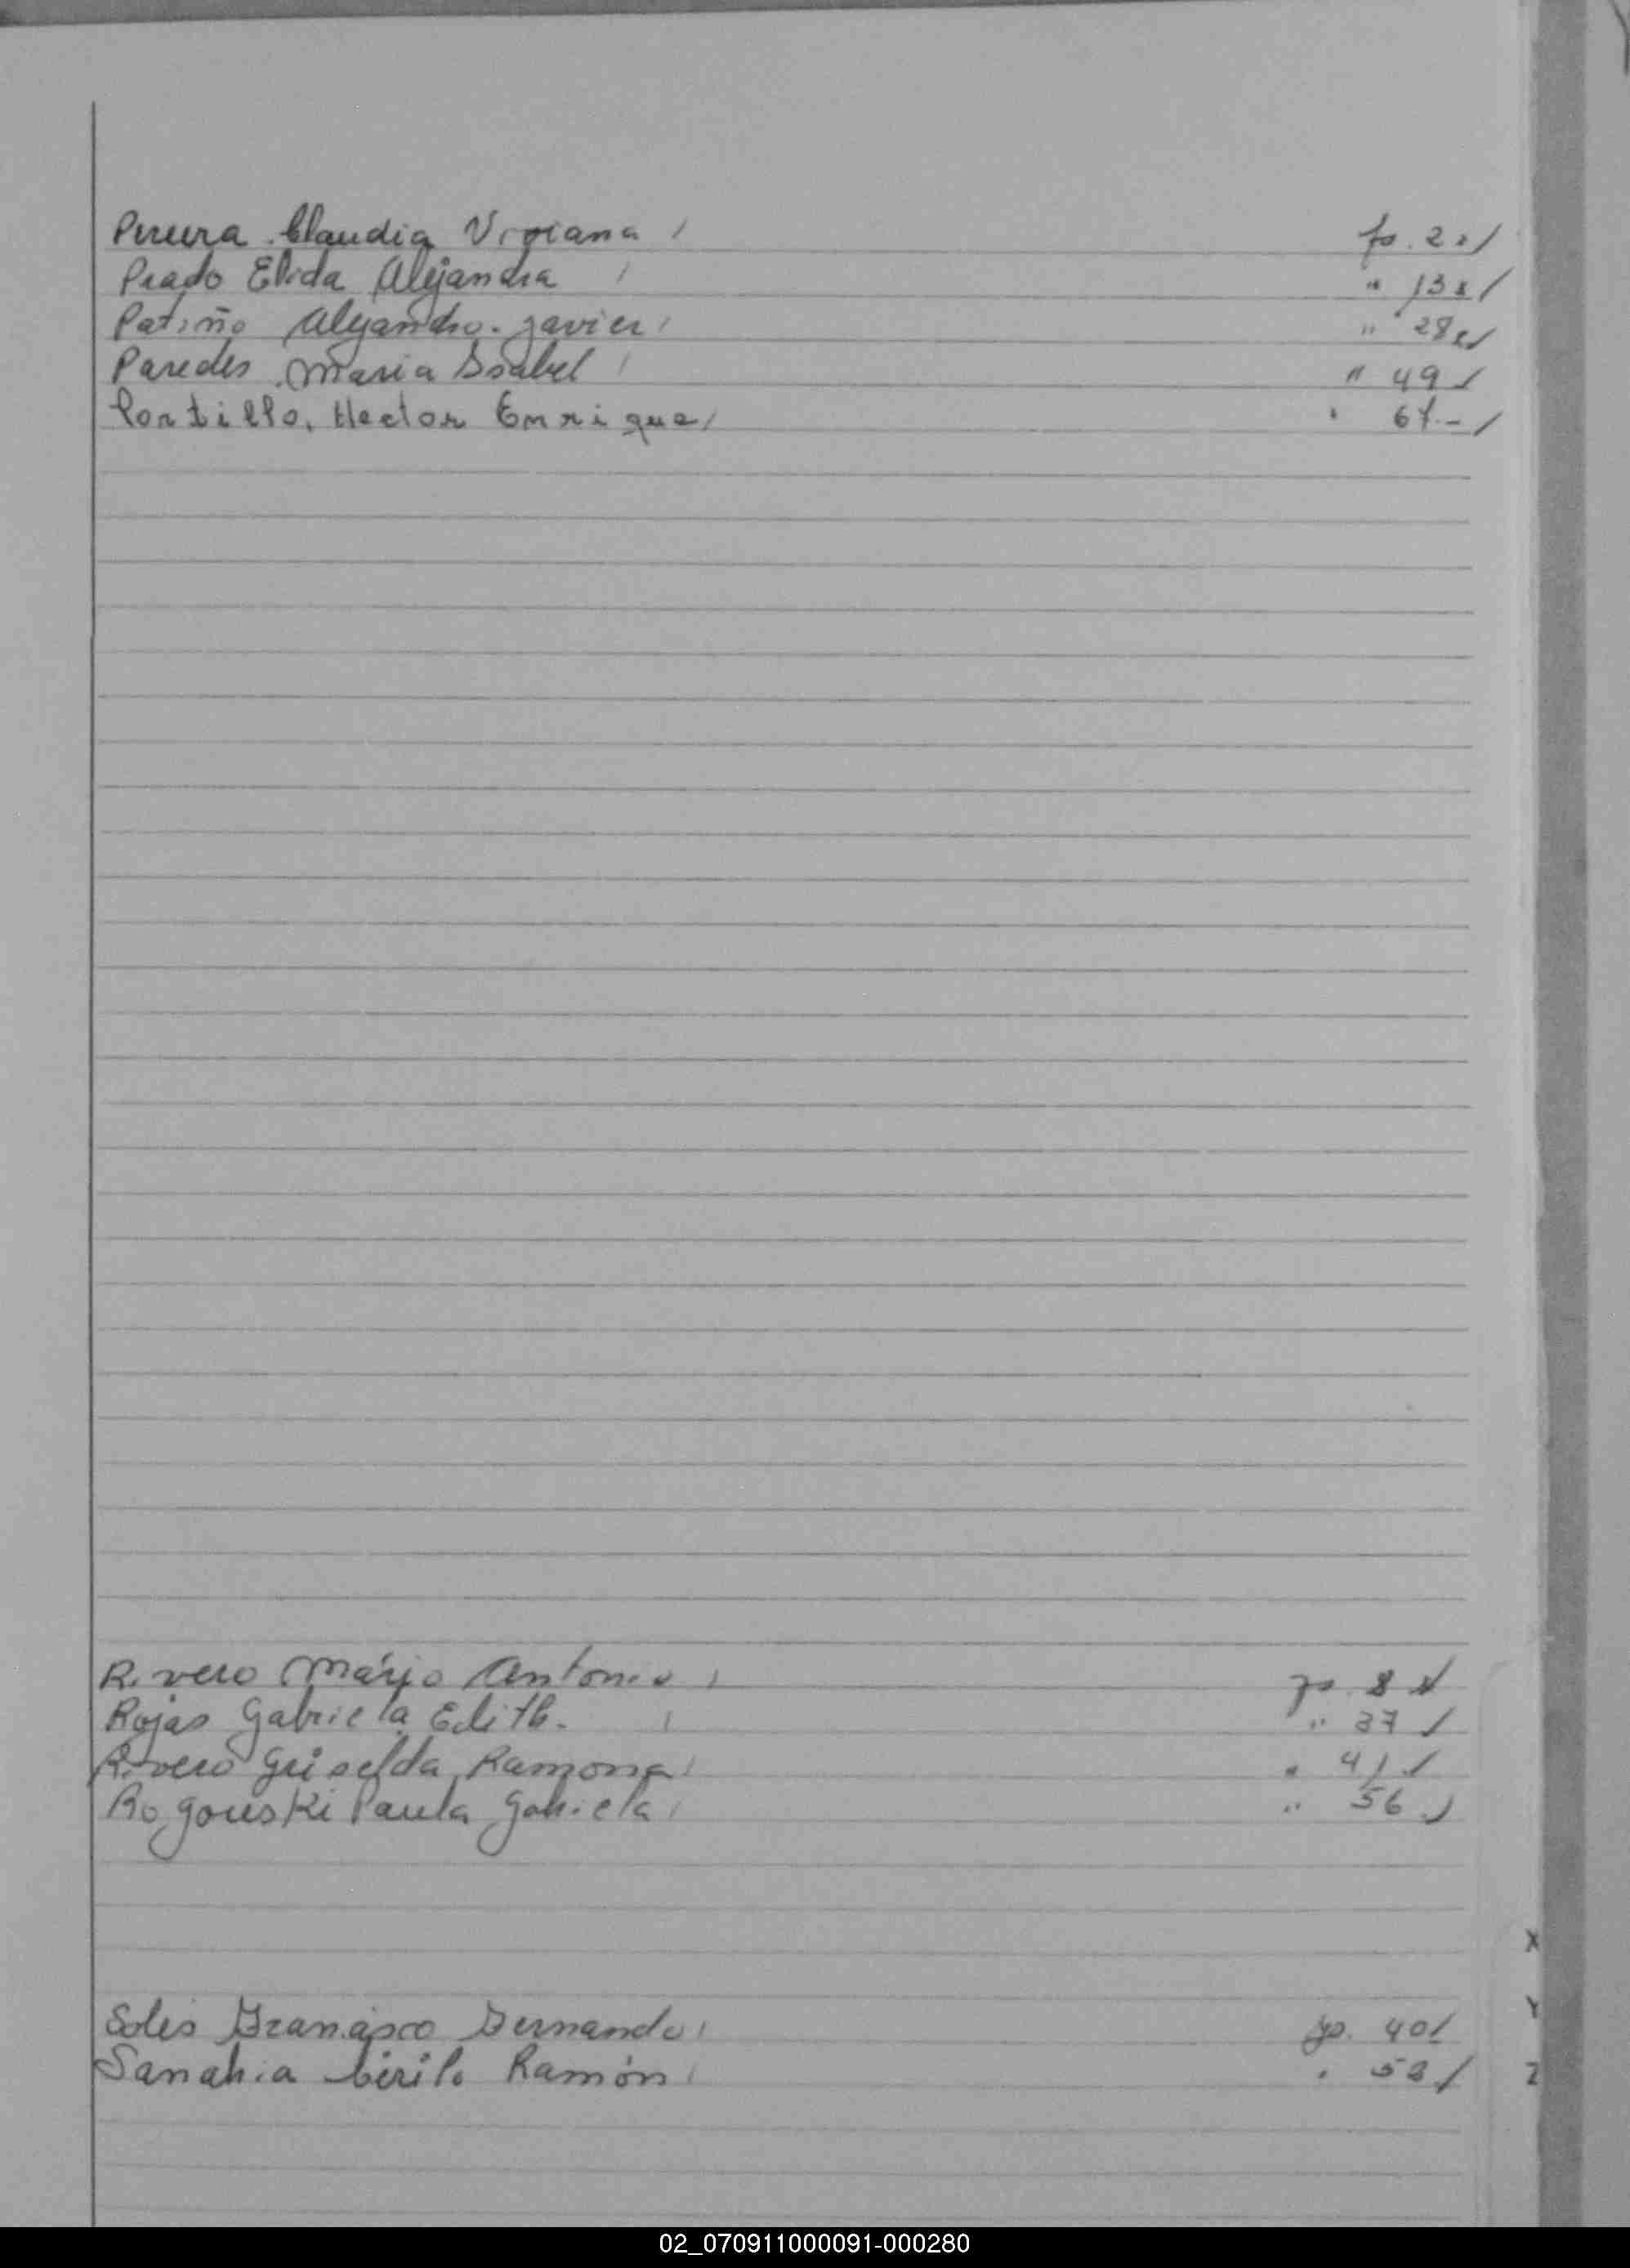 Pereira Claudia Viviana fo. 2
Prado Elida Alejandra " 13
Patiño Alejandro Javier " 28
Paredes Maria Isabel " 49
Portillo, Hector Enrique 67
Rivero Mario Antonio fo. 8
Rojas Gabriela Edith. " 37
Rivero Griselda Ramona " 41
Rogouski Paula Gabriela " 56
Solis Francisco Fernando fo. 40
Sanabia Cirilo Ramón
X
Y
Z
02_070911000091-000280